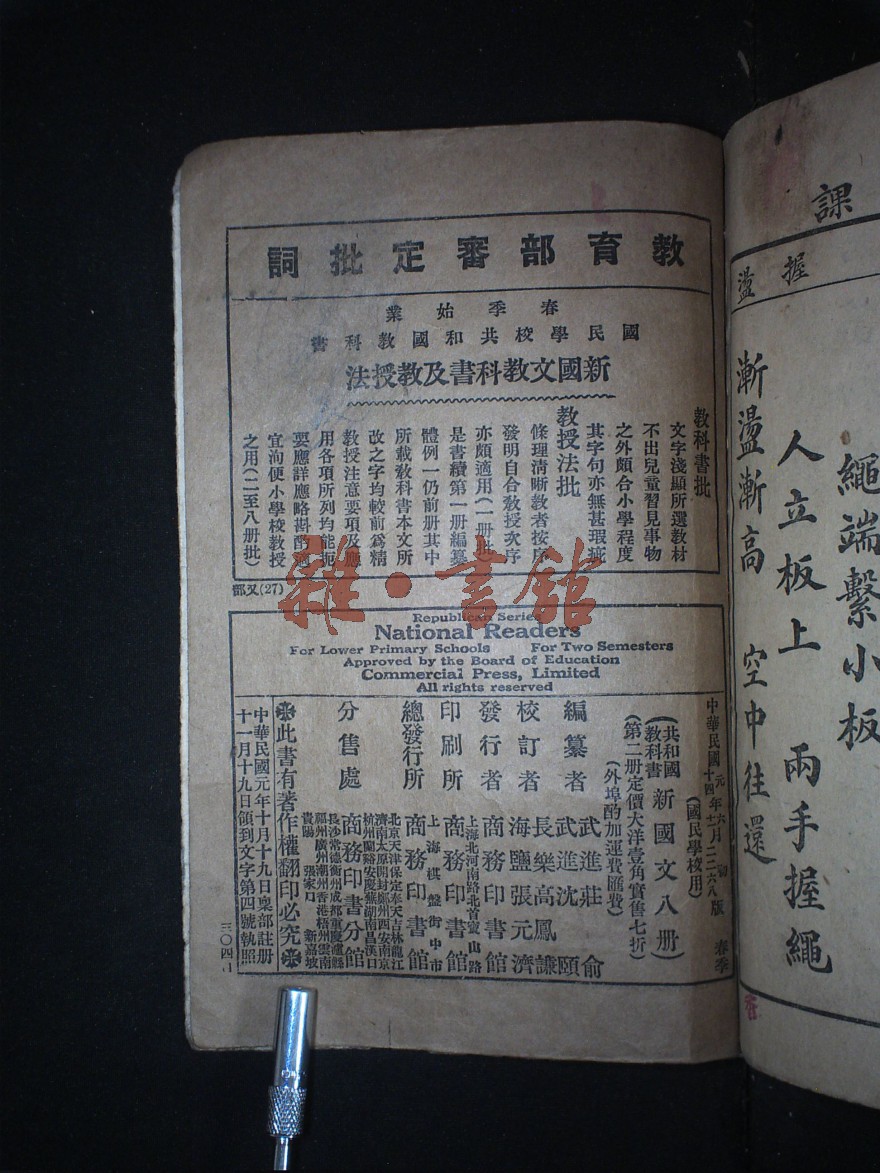 教育部審定批詞
春季始業
國民學校共和國教科書
新國文教科書及教授法
教科書批
文字淺顯所選教材
不出兒童習見事物
之外頗合小學程度
其字句亦無甚瑕疵
教授法批
條理清晰教者按序
發明自合教授次序
亦頗適用(一册批)
是書續第一册編纂
體例一仍前册其中
所載教科書本文所
改之字均較前爲精
教授注意要項及應
用各項所列均能扼
要應詳應略斟酌適
宜洵便小學校教授
之用(二至八册批)
(27)又部
雜·書館
Republican Series
National Readers
For Lower Primary Schools For Two Semesters
Approved by the Board of Education
Commercial Press, Limited
All rights reserved
春季
(國民學校用)
(共和國教科書 新國文八册)
(第二册定價大洋壹角實售七折)
(外埠酌加運費匯費)
編纂者 武進莊俞
武進沈頤
校訂者 長樂高鳳謙
海鹽張元濟
發行者 商務印書館
上海北河南路北首寶山路
印刷所 商務印書館
上海棋盤街中市
總發行所 商務印書館
北京天津保定奉天吉林龍江
濟南太原開封鄭州西安南京
杭州蘭谿安慶蕪湖南昌漢口
分售處 商務印書分館
長沙常德衡州成都重慶瀘縣
福州廣州潮州香港梧州雲南
貴陽 張家口 新嘉坡
此書有著作權翻印必究
中華民國元年十月十九日稟部註册
十一月十九日領到文字第四號執照
課
握
盪
繩端繫小板
人立板上 兩手握繩
漸盪漸高 空中往還